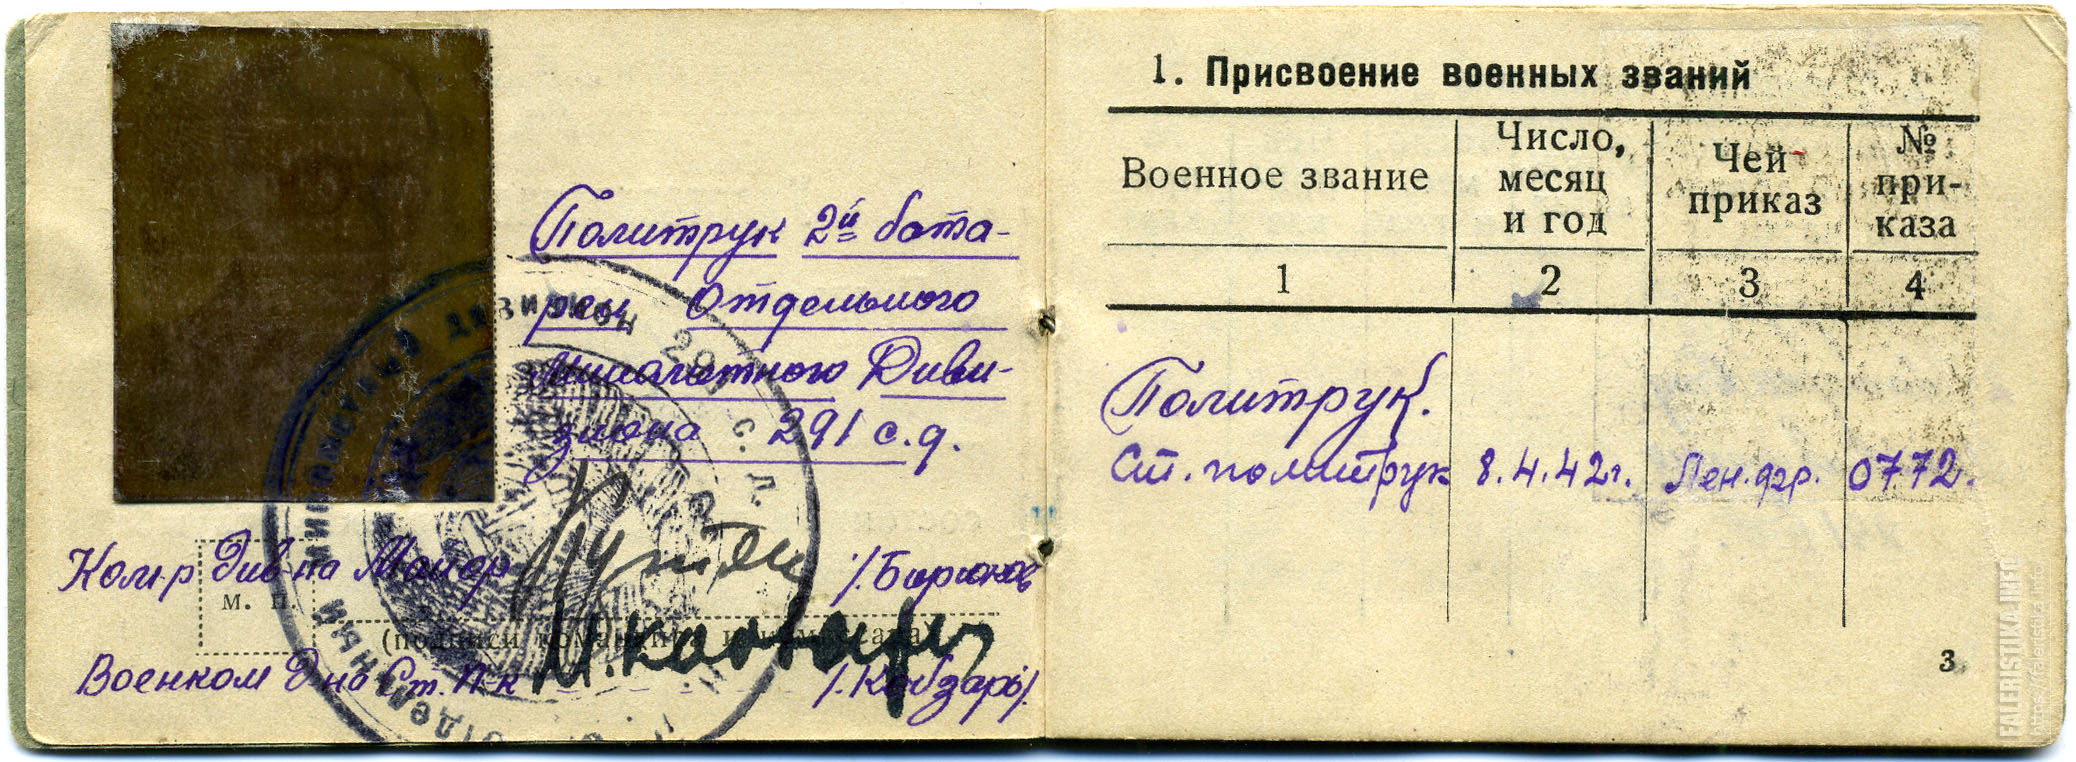 Политрук 2й бата-
реи Отдельного
Минометного Диви-
зиона 291 с.д.
Ком-р Див-на Майор /.Баринов
м. п.
(подписи командира и комиссара)
Военком Д-на Ст. П-к /.Кобзарь/.
МИНОМЕТНЫЙ ДИВИЗИОН 291 с. д.
1. Присвоение военных званий
Военное звание
Число, месяц и год
Чей приказ
№ при-каза
1 2 3 4
Политрук.
Ст. политрук 8.4.42г. Лен. фр. 0772.
3
FALERISTIKA.INFO
https://faleristika.info